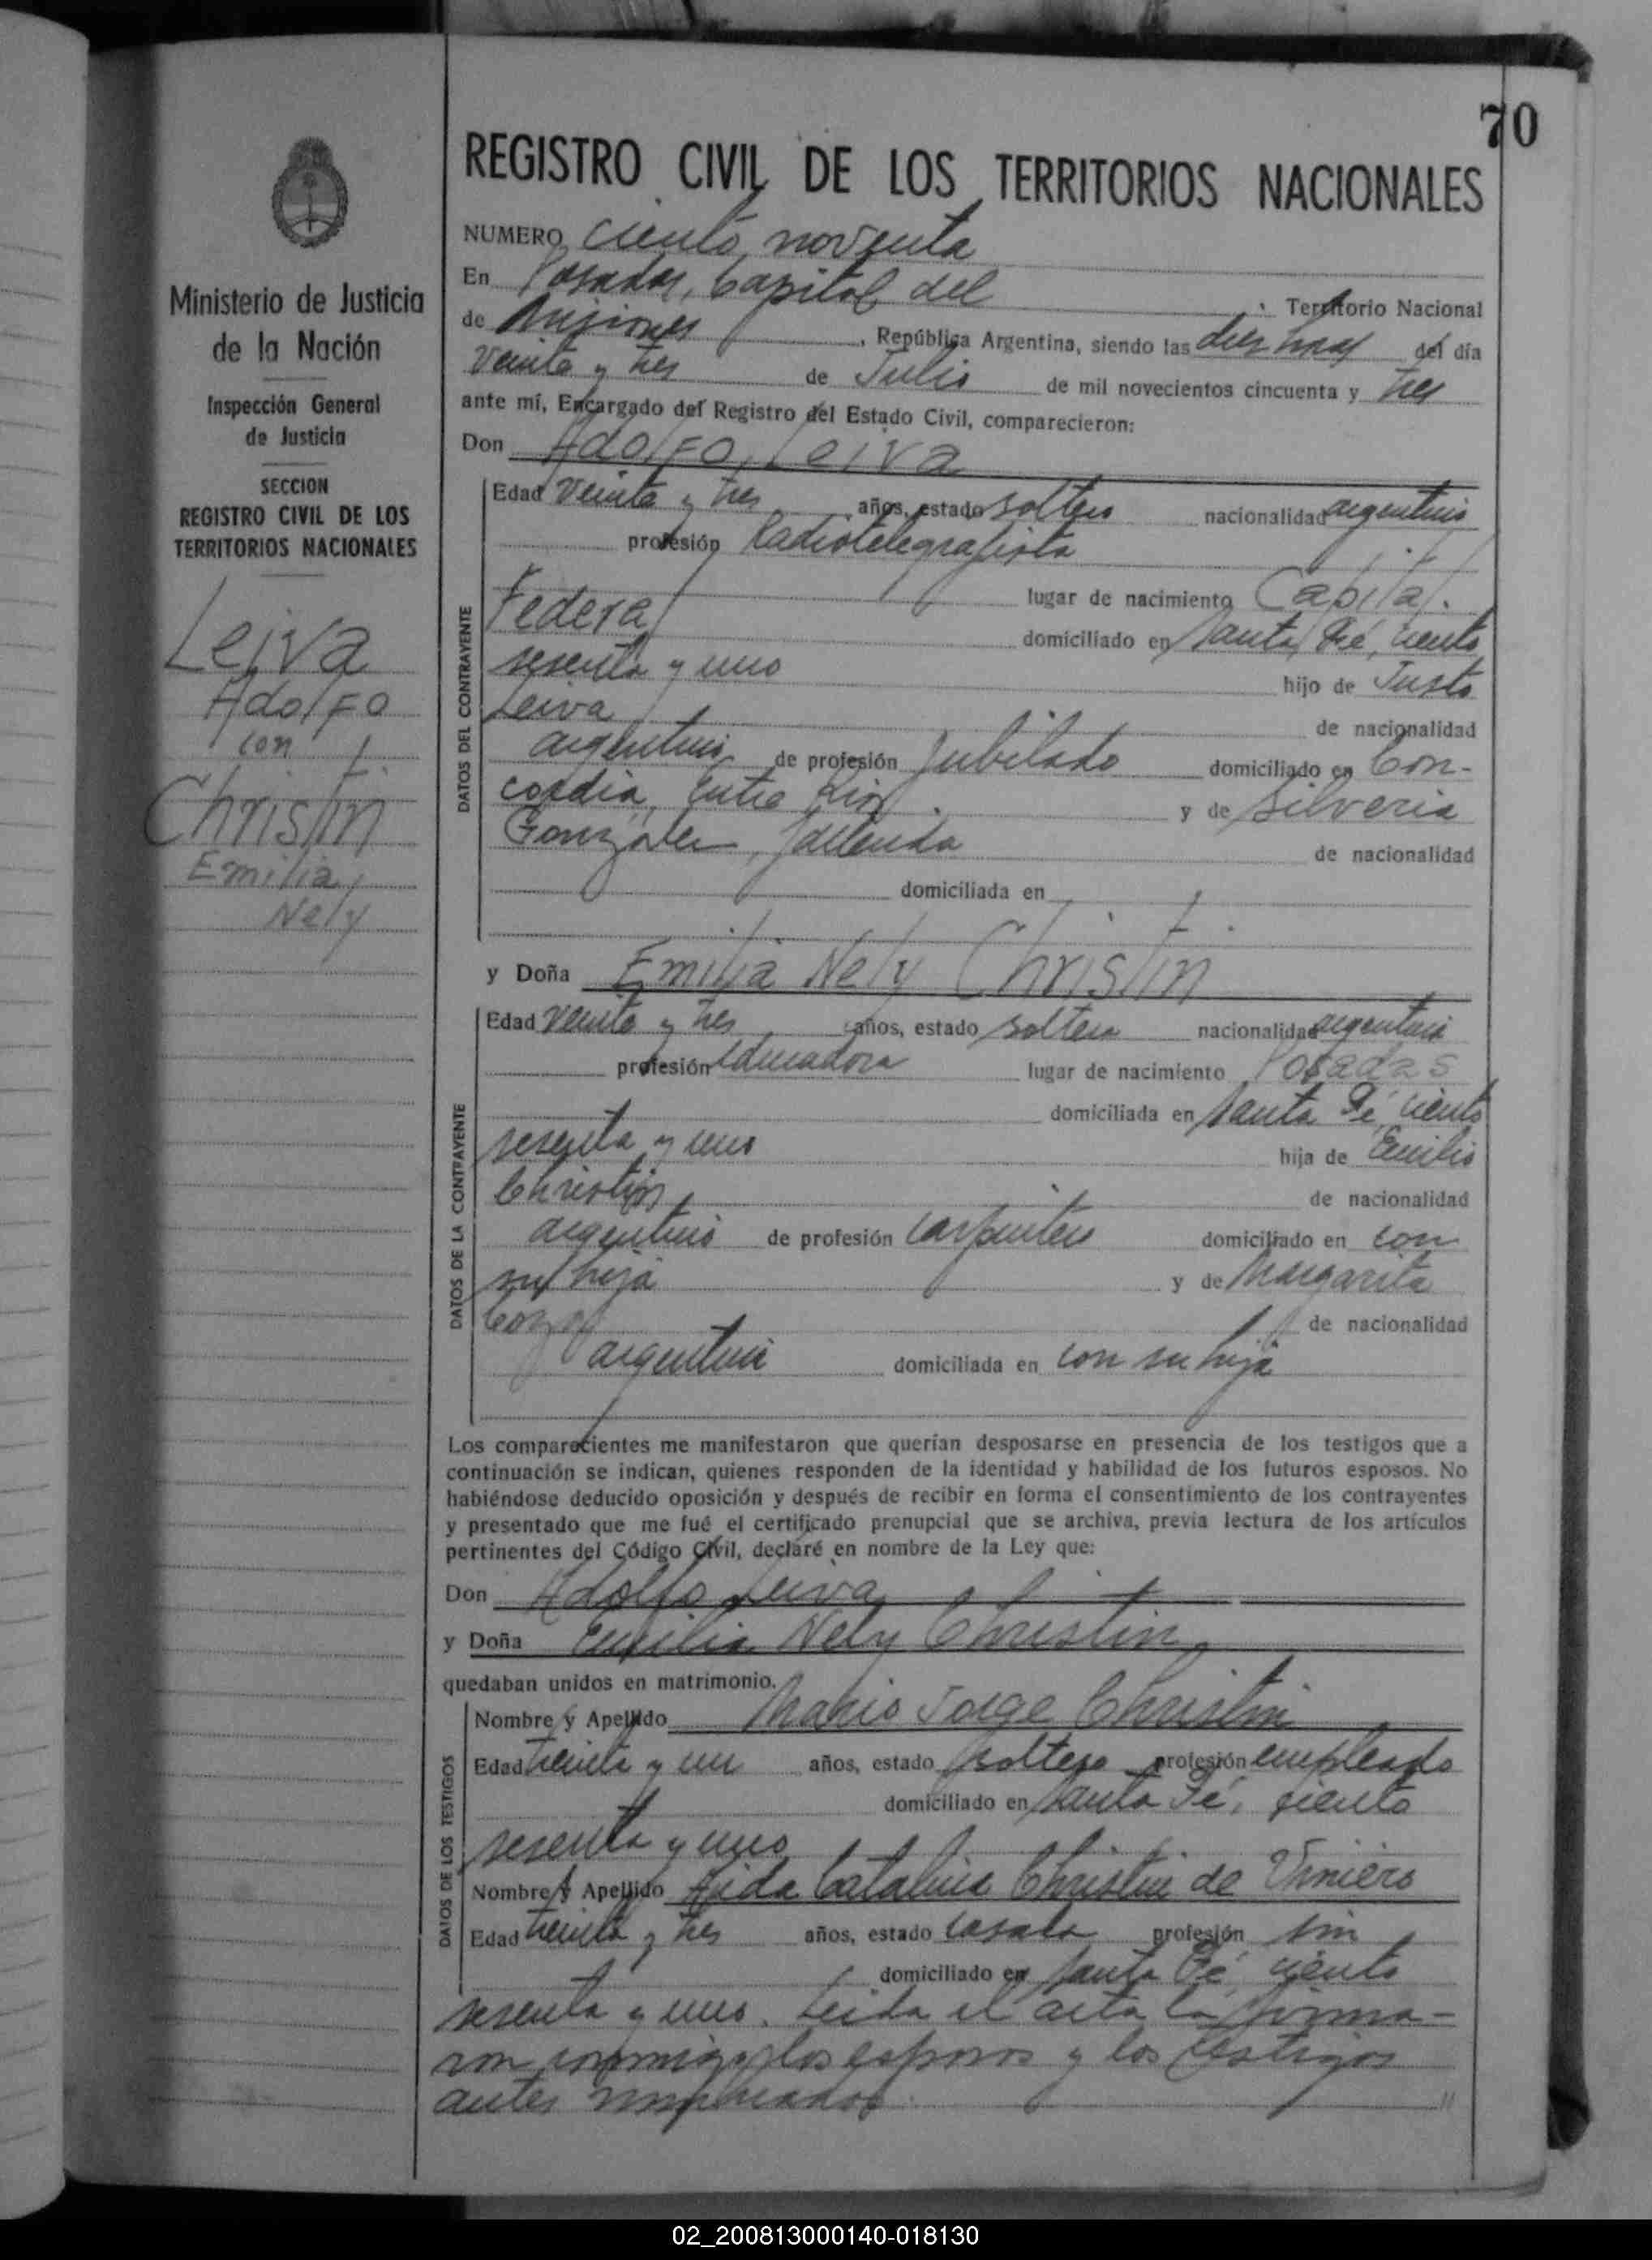 70
REGISTRO CIVIL DE LOS TERRITORIOS NACIONALES
Ministerio de Justicia
de la Nación
Inspección General
de Justicia
SECCION
REGISTRO CIVIL DE LOS
TERRITORIOS NACIONALES
Leiva
Adolfo
con
Christin
Emilia
Nely
NUMERO ciento noventa
En Posadas, Capital del Territorio Nacional
de Misiones, República Argentina, siendo las diez horas del día
veinte y tres de Julio de mil novecientos cincuenta y tres
ante mí, Encargado del Registro del Estado Civil, comparecieron:
Don Adolfo Leiva
DATOS DEL CONTRAYENTE
Edad veinte y tres años, estado soltero nacionalidad argentino
profesión Radiotelegrafista
lugar de nacimiento Capital
Federal domiciliado en Santa Fé, ciento
sesenta y uno hijo de Justo
Leiva de nacionalidad
argentino de profesión Jubilado domiciliado en Con-
cordia, Entre Rios y de Silveria
González, fallecida de nacionalidad
domiciliada en
y Doña Emilia Nely Christin
DATOS DE LA CONTRAYENTE
Edad veinte y tres años, estado soltera nacionalidad argentina
profesión educadora lugar de nacimiento Posadas
domiciliada en Santa Fé, ciento
sesenta y uno hija de Emilio
Christin de nacionalidad
argentino de profesión carpintero domiciliado en con
su hija y de Margarita
de nacionalidad
argentina domiciliada en con su hija
Los comparecientes me manifestaron que querían desposarse en presencia de los testigos que a
continuación se indican, quienes responden de la identidad y habilidad de los futuros esposos. No
habiéndose deducido oposición y después de recibir en forma el consentimiento de los contrayentes
y presentado que me fué el certificado prenupcial que se archiva, previa lectura de los artículos
pertinentes del Código Civil, declaré en nombre de la Ley que:
Don Adolfo Leiva
y Doña Emilia Nely Christin
quedaban unidos en matrimonio.
DATOS DE LOS TESTIGOS
Nombre y Apellido Mario Jorge Christin
Edad treinta y un años, estado soltero profesión empleado
domiciliado en Santa Fé, ciento
sesenta y uno
Nombre y Apellido Aida Catalina Christin de
Edad treinta y tres años, estado casada profesión sin
domiciliado en Santa Fé, ciento
sesenta y uno. Leida el acta la firma-
ron conmigo los esposos y los testigos
antes nombrados.
02_200813000140-018130